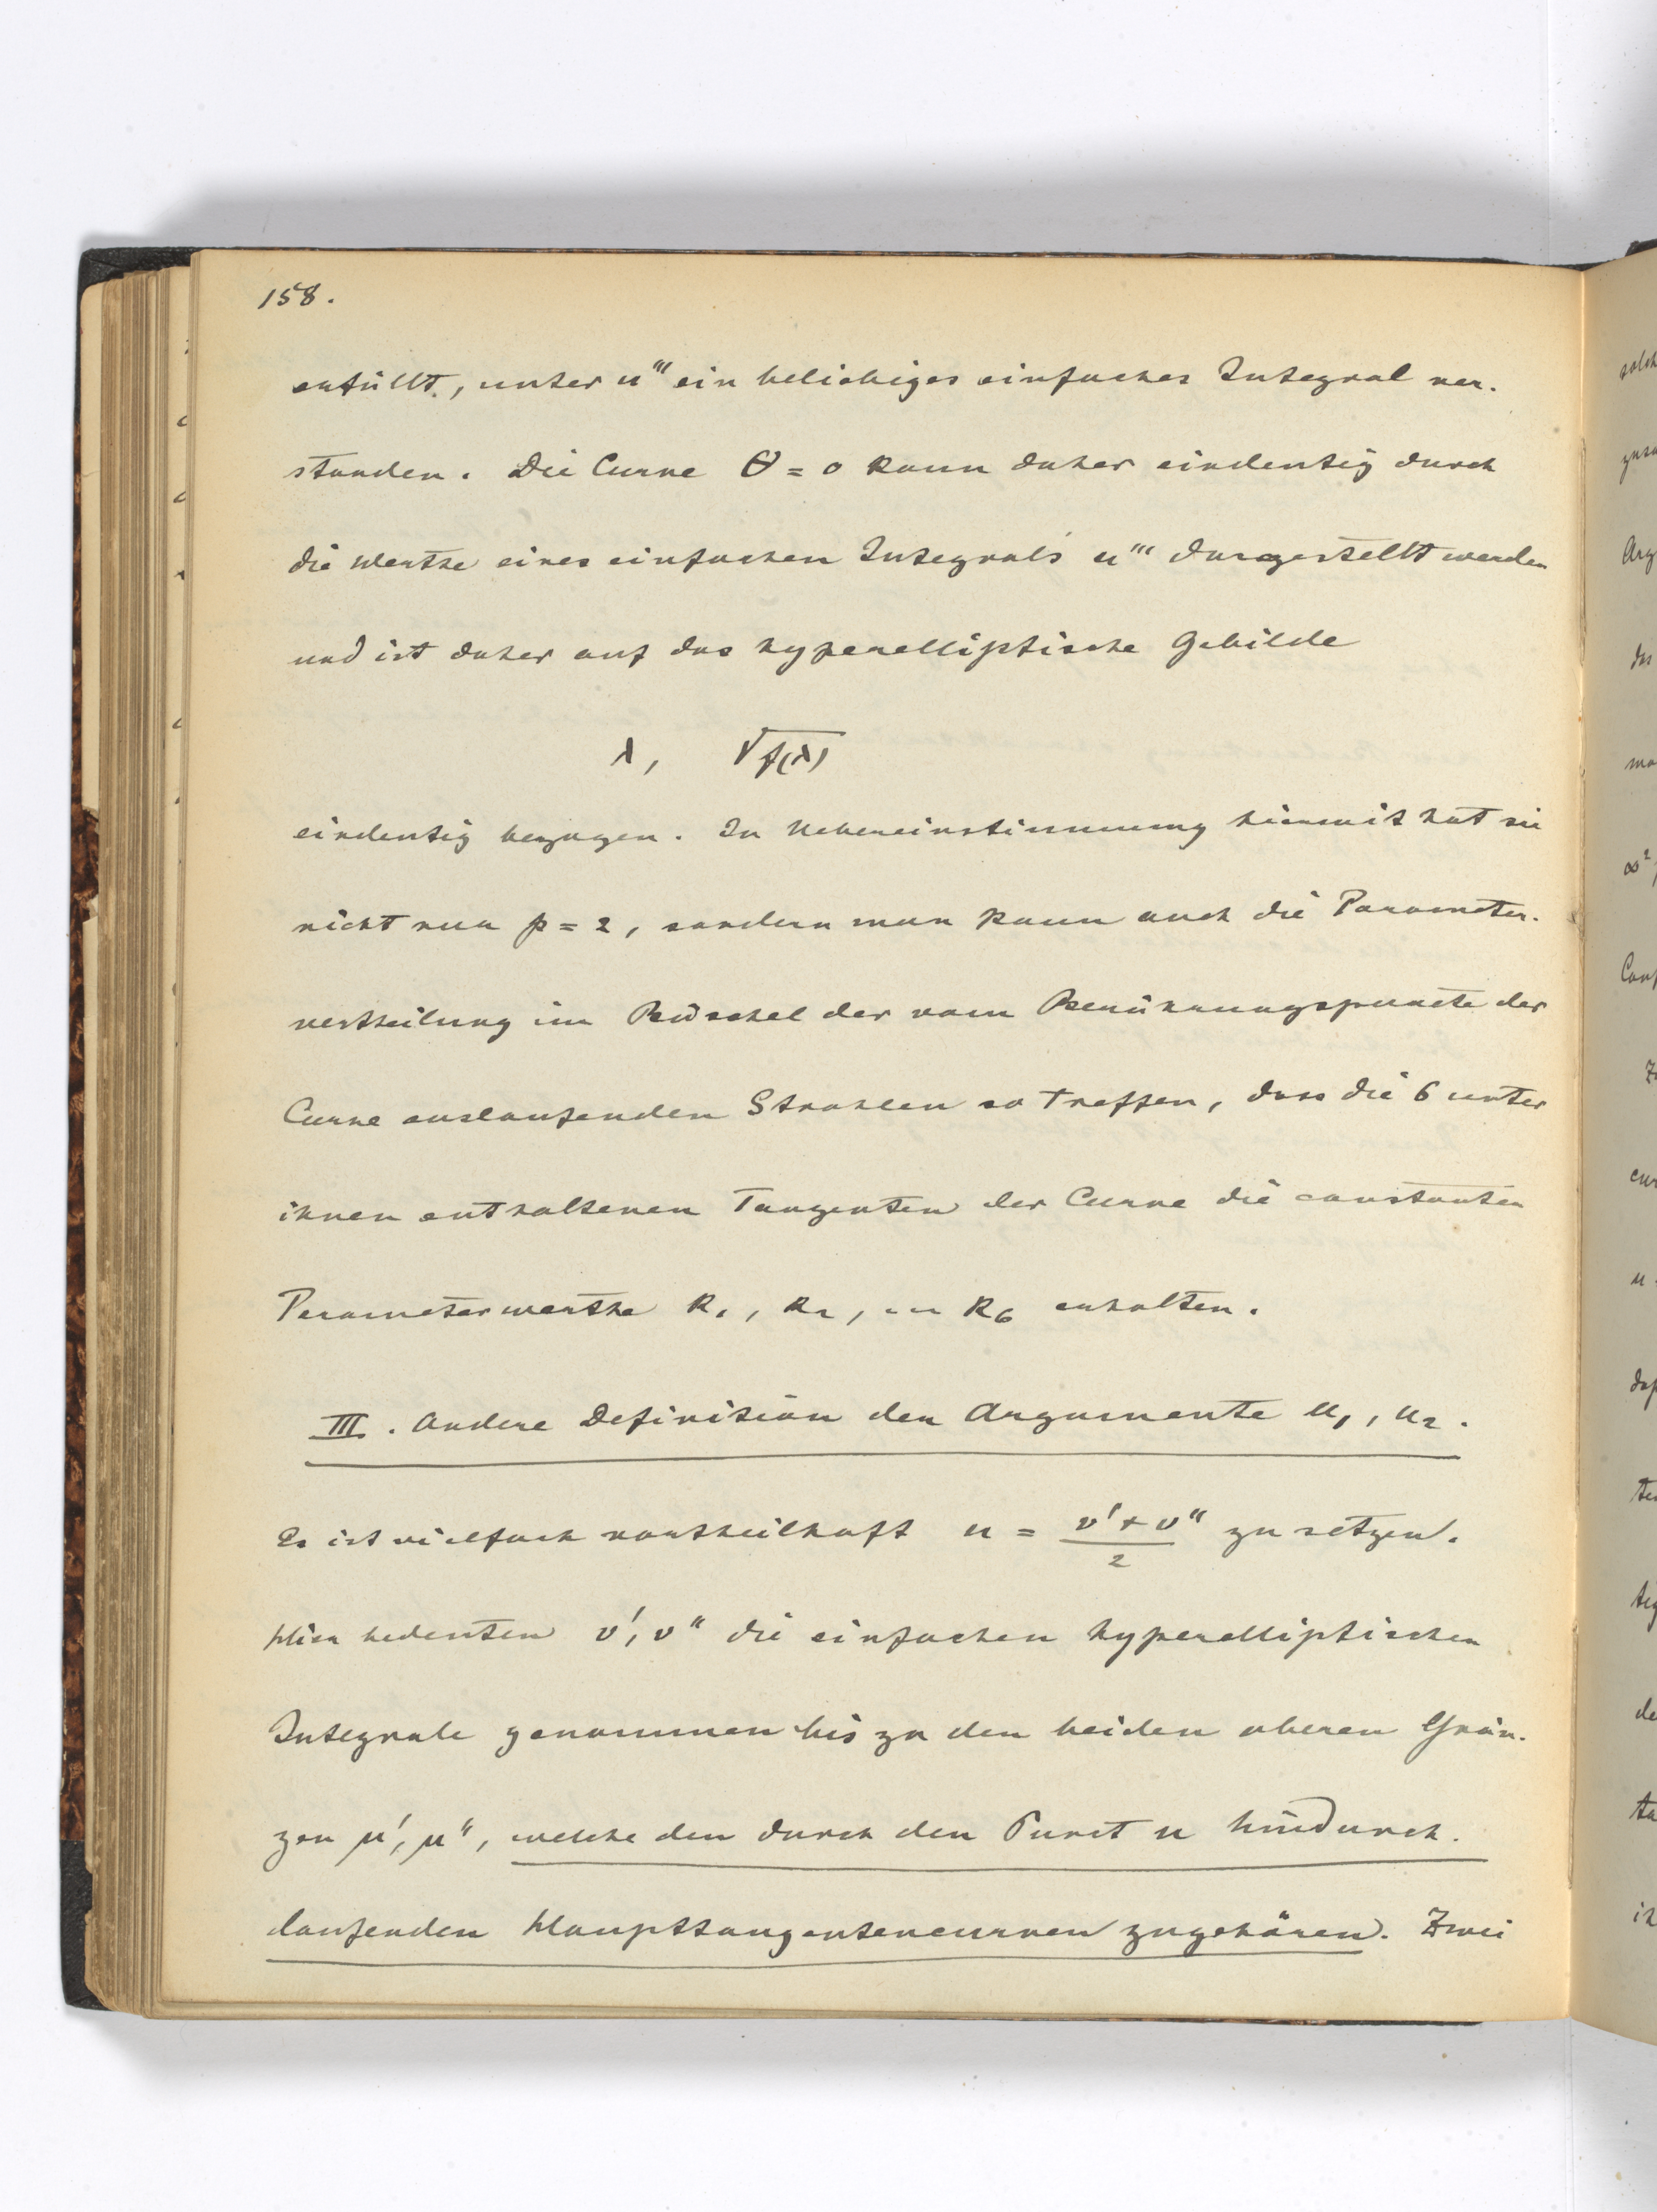 158.
erfüllt, unter u''' ein beliebiges einfaches Integral ver-
standen. Die Curve ϑ = 0 kann daher eindeutig durch
die Werthe eines einfachen Integrals u''' dargestellt werden
und ist daher auf das hyperelliptische Gebilde
λ, √f(λ)
eindeutig bezogen. In Uebereinstimmung hiermit hat sie
nicht nur p = 2, sondern man kann auch die Parameter-
vertheilung im Büschel der vom Berührungspuncte der
Curve auslaufenden Strahlen so treffen, dass die 6 unter
ihnen enthaltenen Tangenten der Curve die constanten
Parameterwerthe k₁, k₂, ... k₆ erhalten.
III. Andere Definition der Argumente u₁, u₂.
Es ist vielfach vortheilhaft u = (v' + v'')/2 zu setzen.
Hier bedeuten v', v'' die einfachen hyperelliptischen
Integrale genommen bis zu den beiden oberen Grän-
zen μ', μ'', welche den durch den Punct u hindurch-
laufenden Haupttangentencurven zugehören. Zwei